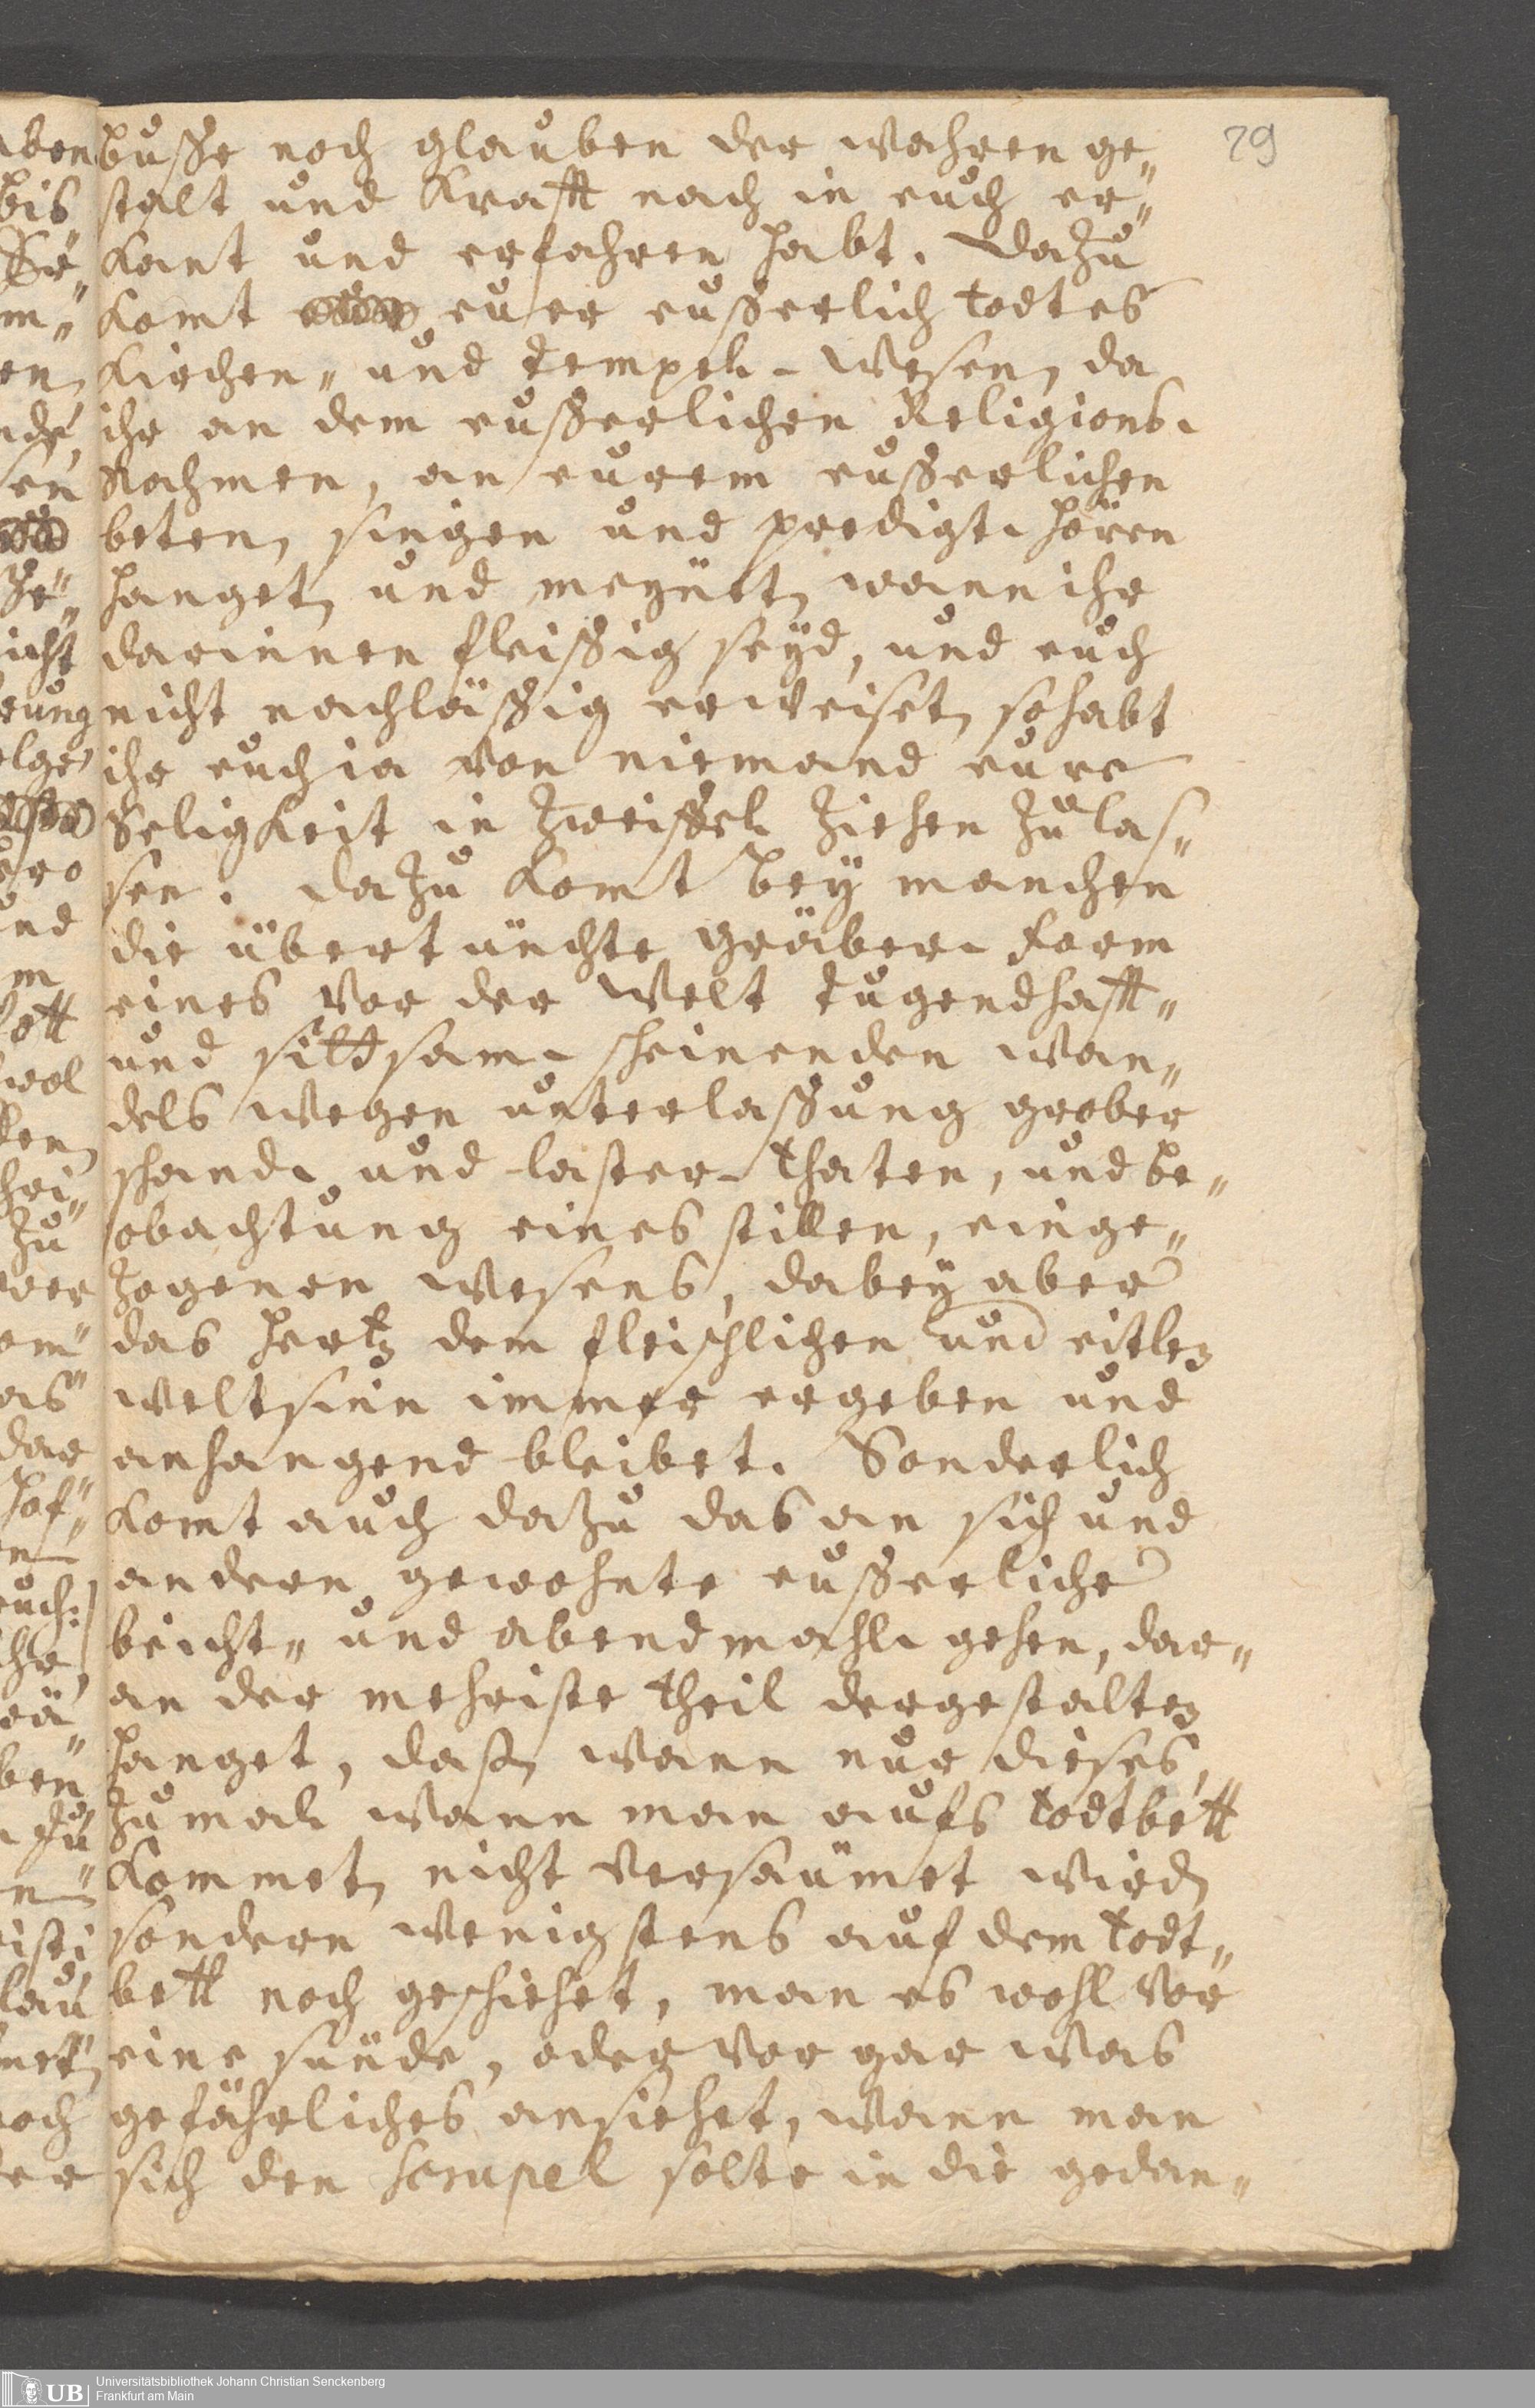 79
buße noch glauben der wahren ge„
stalt und Krafft nach in euch er„
kant und erfahren habt. Dazu
komt euer eußerlich todtes
Kirchen„ und Tempel-wesen, da
ihr an dem eußerlichen Religions-
Nahmen, an eurem eußerlichen
beten, singen und predigt-hören
hanget, und meynet, wann ihr
darinnen fleißig seyd, und euch
nicht nachläßig erweiset, so habt
ihr euch ja von niemand eure
Seligkeit in Zweiffel ziehen zu las„
sen. Dazu komt bey manchen
die übertünchte gräber-form
eines vor der welt tugendhafft„
und sittsam-scheinenden wan„
dels wegen unterlaßung grober
schand- und laster-thaten, und be„
obachtung eines stillen, einge„
zogenen wesens, dabey aber
das hertz dem fleischlichen und eitlen
weltsinn immer ergeben und
anhangend bleibet. Sonderlich
komt auch dazu das an sich und
andern gewohnte eußerliche
beicht„ und abendmahl-gehen, dar„
an der mehriste theil dergestalten
hanget, daß, wann nur dieses,
zumal wann man aufs todtbett
kommet, nicht versäumet wird,
sondern wenigstens auf dem todt„
bett noch geschiehet, man es wohl vor
eine sünde, oder vor gar was
gefährliches ansiehet, wann man
sich den scrupel solte in die gedan„
Universitätsbibliothek Johann Christian Senckenberg
Frankfurt am Main
UB